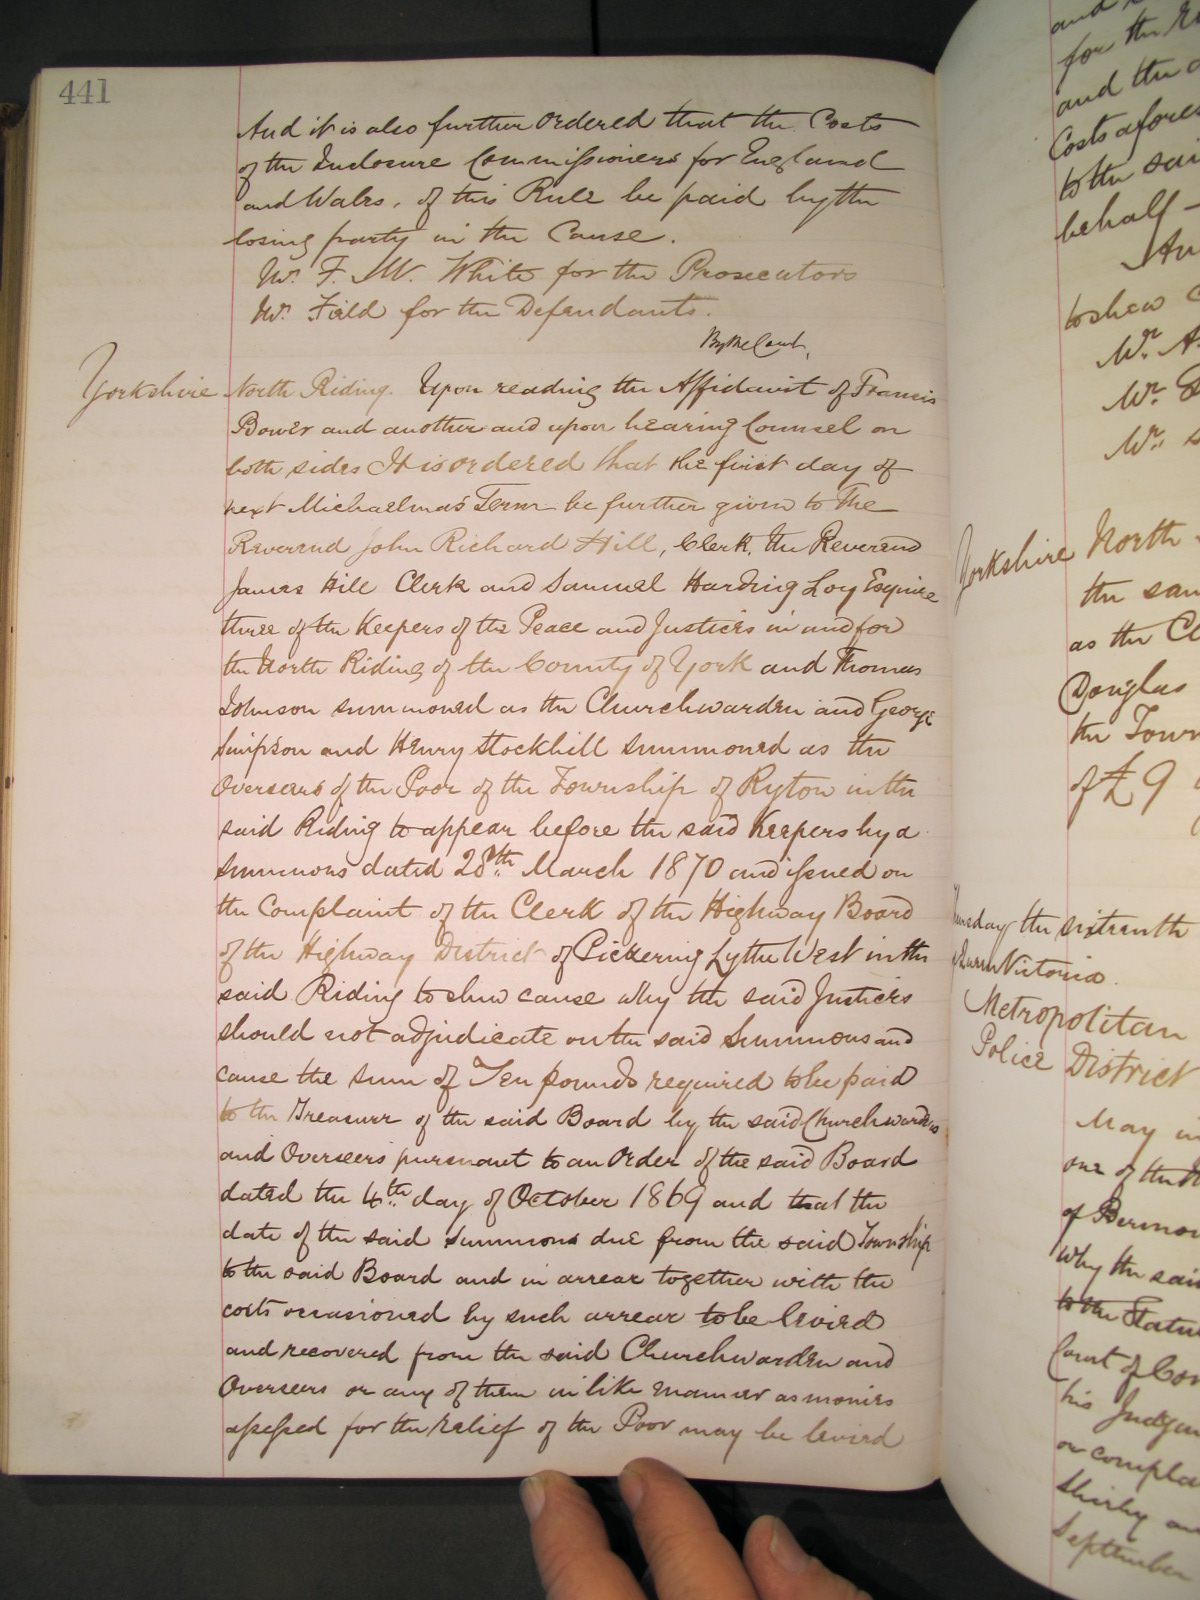 441
And it is also further Ordered that the Costs
of the Inclosure Commissioners for England
and Wales, of this Rule be paid by the
losing party in the Cause.
Mr. F. M. White for the Prosecutors
Mr. Field for the Defendants.
By the Court.
Yorkshire North Riding. Upon reading the Affidavit of Francis
Bower and another and upon hearing Counsel on
both sides It is ordered that the first day of
next Michaelmas Term be further given to the
Reverend John Richard Hill, Clerk, the Reverend
James Hill Clerk and Samuel Harding Loy Esquire
three of the Keepers of the Peace and Justices in and for
the North Riding of the County of York and Thomas
Johnson summoned as the Churchwarden and George
Simpson and Henry Stockhill summoned as the
Overseers of the Poor of the Township of Ryton in the
said Riding to appear before the said Keepers by a
summons dated 28th March 1870 and issued on
the Complaint of the Clerk of the Highway Board
of the Highway District of Pickering Lythe West in the
said Riding to shew cause why the said Justices
should not adjudicate on the said Summons and
cause the sum of Ten pounds required to be paid
to the Treasurer of the said Board by the said Churchwarden
and Overseers pursuant to an Order of the said Board
dated the 4th day of October 1869 and that the
date of the said summons due from the said Township
to the said Board and in arrear together with the
costs occasioned by such arrear to be levied
and recovered from the said Churchwarden and
Overseers or any of them in like manner as monies
assessed for the relief of the Poor may be levied
and
for the
and the
Costs afore
to the said
behalf -
to shew
Mr. A
Mr.
Mr.
Yorkshire North
the sam
as the Cl
Douglas
the Town
of £9
the sixteenth
Queen Victoria.
Metropolitan
Police District
May
one of the
of Bermon
why the said
to the Statu
Court of Con
his Judgm
or compla
Shirley
September